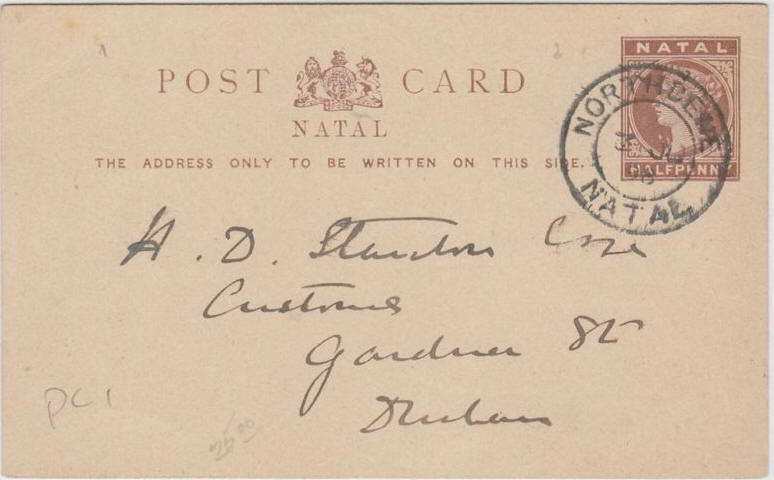 POST CARD
NATAL
THE ADDRESS ONLY TO BE WRITTEN ON THIS SIDE.
NATAL
HALFPENNY
NORTHDENE
NATAL
H. D. Stainton
Customs
Gardner St
Durban
PC 1